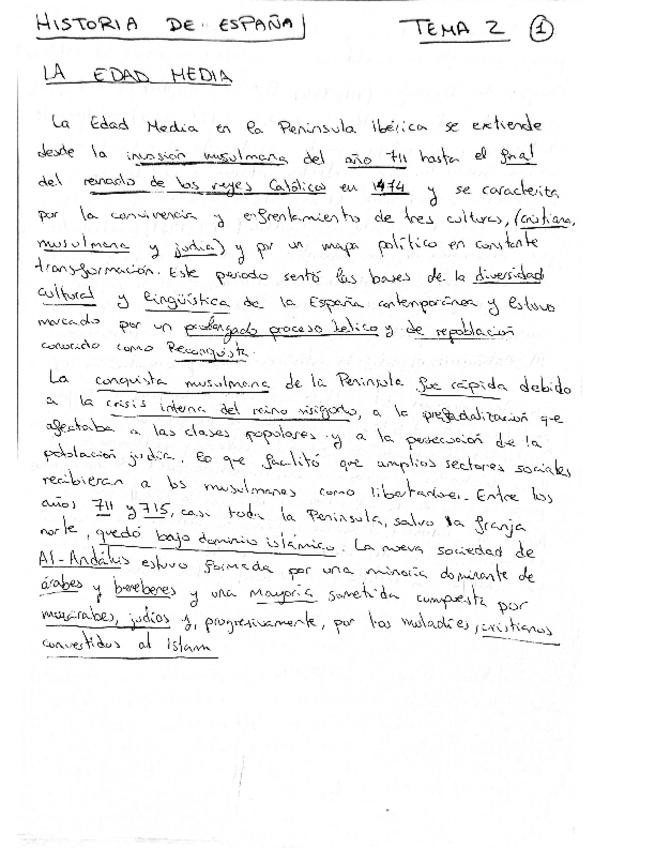 HISTORIA DE ESPAÑA
TEMA 2 1
LA EDAD MEDIA
La Edad Media en la Península ibérica se extiende
desde la invasión musulmana del año 711 hasta el final
del reinado de los reyes Católicos en 1474 y se caracteriza
por la convivencia y enfrentamiento de tres culturas, (cristiana,
musulmana y judía) y por un mapa político en constante
transformación. Este periodo sentó las bases de la diversidad
cultural y lingüística de la España contemporánea y estuvo
marcado por un prolongado proceso bélico y de repoblación
conocido como Reconquista.
La conquista musulmana de la Península fue rápida debido
a la crisis interna del reino visigodo, a la prefeudalización que
afectaba a las clases populares y a la persecución de la
población judía. Lo que facilitó que amplios sectores sociales
recibieran a los musulmanes como libertadores. Entre los
años 711 y 715, casi toda la Península, salvo la franja
norte, quedó bajo dominio islámico. La nueva sociedad de
Al-Andalus estuvo formada por una minoría dominante de
árabes y bereberes y una mayoría sometida compuesta por
mozárabes, judíos y, progresivamente, por los muladíes, cristianos
convertidos al Islam